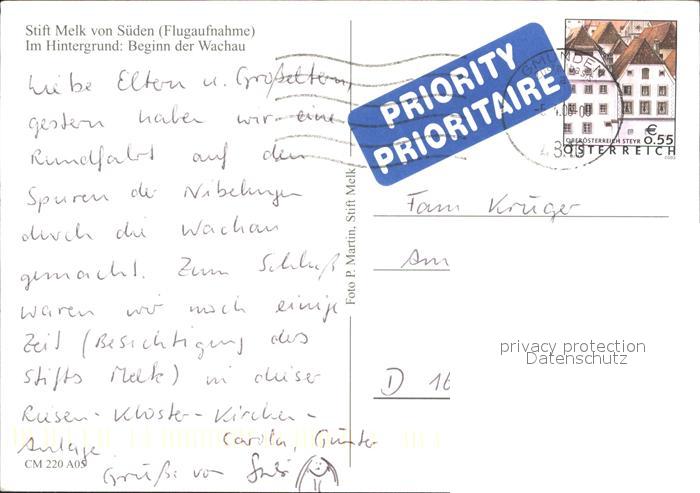 Stift Melk von Süden (Flugaufnahme)
Im Hintergrund: Beginn der Wachau
Liebe Eltern u. Großeltern,
gestern haben wir eine
Rundfahrt auf den
Spuren der Nibelungen
durch die Wachau
gemacht. Zum Schluß
waren wir noch einige
Zeit (Besichtigung des
Stifts Melk) in dieser
Riesen-Kloster-Kirchen-
Anlage
Carola, Günter
Grüße von
CM 220 A05
Foto P. Martin, Stift Melk
PRIORITY
PRIORITAIRE
GMUNDEN
€
0.55
OBERÖSTERREICH STEYR
ÖSTERREICH
Fam Krüger
Am
D 16
privacy protection
Datenschutz